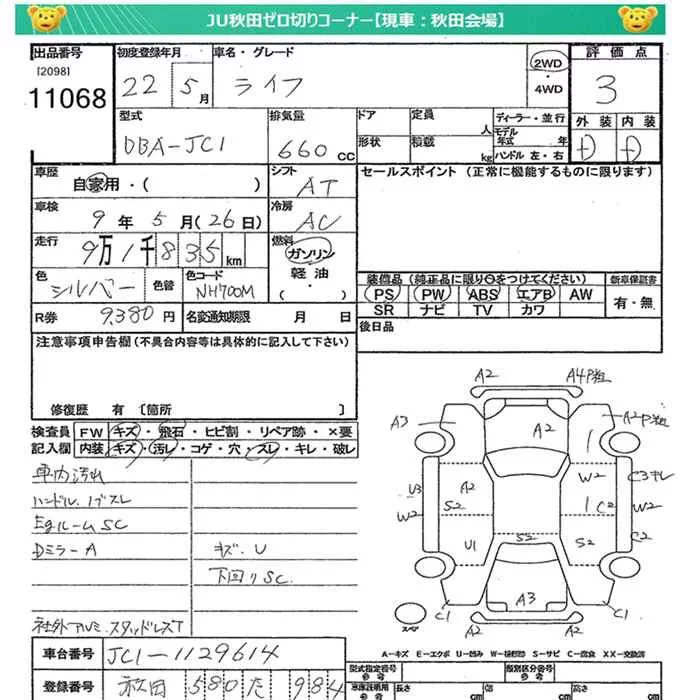 JU秋田ゼロ切りコーナー【現車：秋田会場】
出品番号 初度登録年月 車名・グレード 2WD 評価点
[2098]
11068 22 5月 ライフ ・4WD 3
型式 排気量 ドア 定員 人 ディーラー・並行 外装 内装
DBA-JC1 660cc 形状 積載 kg モデル年式 年 ハンドル 左・右 D D
車歴 シフト セールスポイント (正常に機能するものに限ります)
自家用・( ) AT
車検 冷房
9年 5月(26日) AC
走行 9万1千835km 燃料 ガソリン
軽油
・( )
色 シルバー 色替 色コード NH700M
装備品 (純正品に限り○をつけてください) 新車保証書
PS PW ABS エアB AW 有・無
SR ナビ TV カワ
R券 9,380円 名変通知期限 月 日
後日品
注意事項申告欄 (不具合内容等は具体的に記入して下さい)
修復歴 有 [箇所 ]
検査員 FW キズ・飛石・ヒビ割・リペア跡・×要
記入欄 内装 キズ・汚レ・コゲ・穴・スレ・キレ・破レ
車内汚れ
ハンドル、ノブスレ
Egルーム SC
Dミラー A キズ、U
下回りSC
社外アルミ、スタッドレスT
A2 A4P粗
A3 A2 A2P粗
W2 C3キレ
U3 A2
W2 S2 C2 W2
S2 C2
U1 S2
A3
C1 C1
スペア
A-キズ E-エクボ U-凹み W-補修跡 S-サビ C-腐食 XX-交換済
車台番号 JC1-1129614
型式指定番号 参考 類別区分番号 参考
登録番号 秋田 580 た 984
車庫証明用 参考 長さ cm 幅 cm 高さ cm